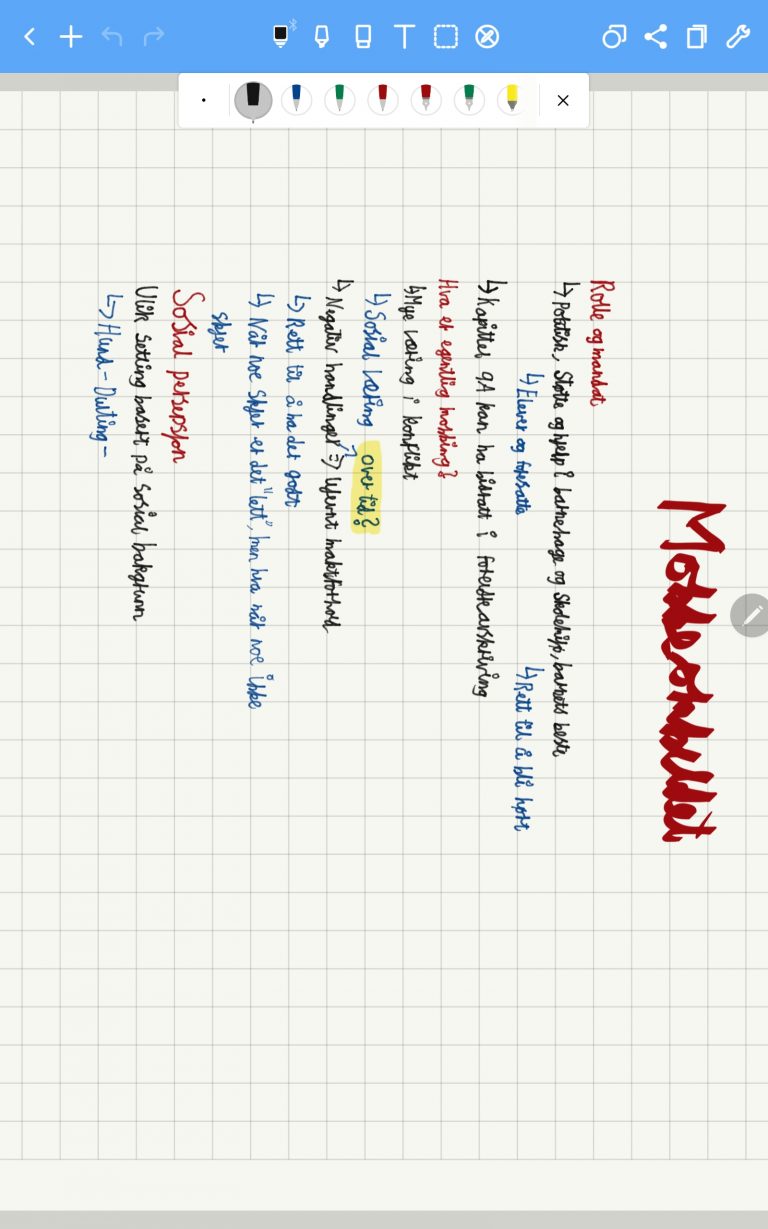 Mobbeombudet
Rolle og mandat
↳ Politisk, Støtte og hjelp? barnehage og Skolehjp, barnets beste
↳ Elever og foresatte ↳ Rett til å bli hørt
↳ Kapittel 9A kan ha bistatt i
Hva er egentlig mobbing?
↳ Mye læring i konflikt
↳ Sosial læring over tid?
↳ Negativ handlinger => Ujevnt maktforhold
↳ Rett til å ha det godt
↳ Når noe Skjer er det "lett", men hva når noe ikke
skjer
Sosial persepsjon
Ulik Setting basert på sosial bakgrunn
↳ Hund -